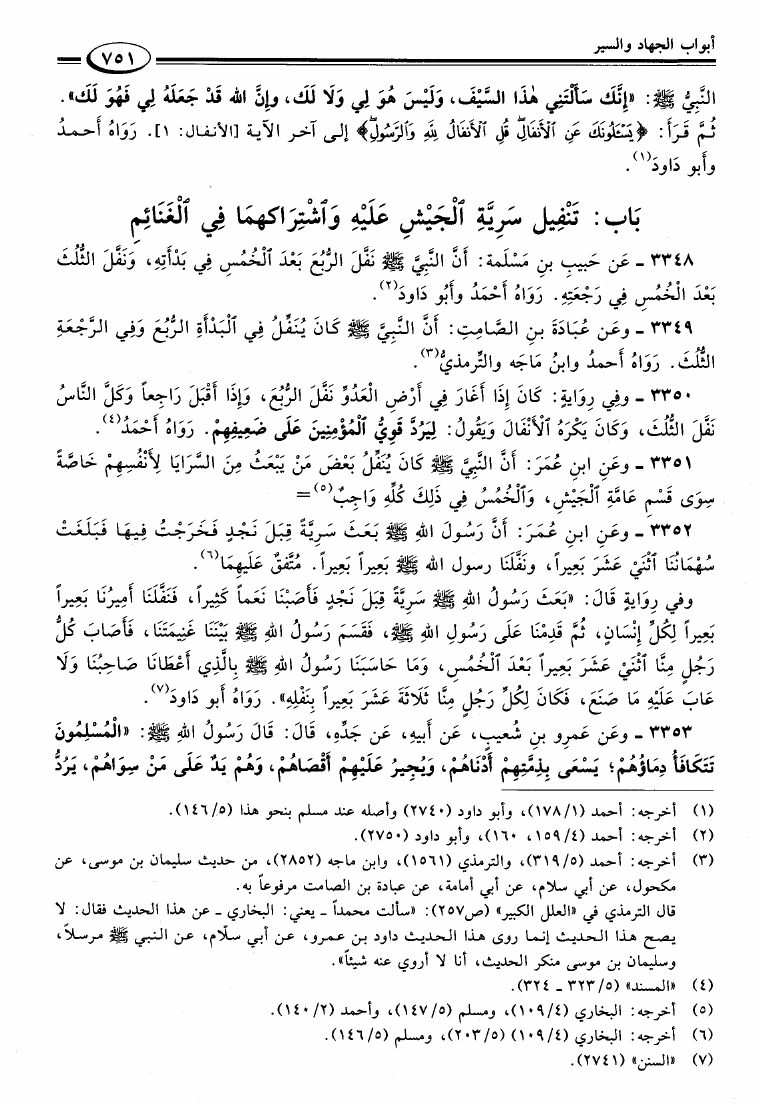 أبواب الجهاد والسير
٧٥١
النَّبِيُّ ﷺ: «إِنَّكَ سَأَلْتَنِي هٰذَا السَّيْفَ، وَلَيْسَ هُوَ لِي وَلَا لَكَ، وإِنَّ الله قَدْ جَعَلَهُ لِي فَهُوَ لَكَ».
ثُمَّ قَرَأَ: ﴿يَسْـَٔلُونَكَ عَنِ ٱلْأَنفَالِ قُلِ ٱلْأَنفَالُ لِلَّهِ وَٱلرَّسُولِ﴾ إلى آخر الآية [الأنفال: ١]. رَوَاهُ أَحمدُ
وأبو دَاودَ(١).
بَاب: تَنْفِيل سَرِيَّةِ ٱلْجَيْشِ عَلَيْهِ وَٱشْتِرَاكهمَا فِي ٱلْغَنَائِمِ
٣٣٤٨ ـ عَن حَبيبِ بنِ مَسْلَمة: أَنَّ النَّبِيَّ ﷺ نَفَّلَ الرُّبُعَ بَعْدَ ٱلْخُمُسِ فِي بَدْأَتِهِ، وَنَفَّلَ الثُّلُثَ
بَعْدَ الْخُمُسِ فِي رَجْعَتِهِ. رَوَاهُ أَحْمَدُ وأَبُو دَاوُدَ(٢).
٣٣٤٩ ـ وعَن عُبَادَةَ بنِ الصَّامِتِ: أَنَّ النَّبِيَّ ﷺ كَانَ يُنَفِّلُ فِي ٱلْبَدْأَةِ الرُّبُعَ وَفِي الرَّجْعَةِ
الثُّلُثَ. رَوَاهُ أَحمدُ وابنُ مَاجَه والتِّرمذيُّ(٣).
٣٣٥٠ ـ وفِي رِوَايَةٍ: كَانَ إِذَا أَغَارَ فِي أَرْضِ ٱلْعَدُوِّ نَفَّلَ الرُّبُعَ، وَإِذَا أَقْبَلَ رَاجِعاً وَكَلَّ النَّاسُ
نَفَّلَ الثُّلُثَ، وَكَانَ يَكْرَهُ ٱلْأَنْفَالَ وَيَقُولُ: لِيَرُدَّ قَوِيُّ ٱلْمُؤْمِنِينَ عَلَى ضَعِيفِهِمْ. رَوَاهُ أَحْمَدُ(٤).
٣٣٥١ ـ وعَنِ ابنِ عُمَرَ: أَنَّ النَّبِيَّ ﷺ كَانَ يُنَفِّلُ بَعْضَ مَنْ يَبْعَثُ مِنَ السَّرَايَا لِأَنْفُسِهِمْ خَاصَّةً
سِوَى قَسْمِ عَامَّةِ ٱلْجَيْشِ، وَٱلْخُمُسُ فِي ذَلِكَ كُلِّهِ وَاجِبٌ(٥)=
٣٣٥٢ ـ وعَنِ ابنِ عُمَرَ: أَنَّ رَسُولَ الله ﷺ بَعَثَ سَرِيَّةً قِبَلَ نَجْدٍ فَخَرَجْتُ فِيهَا فَبَلَغَتْ
سُهْمَانُنَا ٱثْنَيْ عَشَرَ بَعِيراً، ونَفَّلَنَا رسول الله ﷺ بَعِيراً بَعِيراً. مُتَّفقٌ عَلَيهِمَا(٦).
وفي رِوَايةٍ قَالَ: «بَعَثَ رَسُولُ اللهِ ﷺ سَرِيَّةً قِبَلَ نَجْدٍ فَأَصَبْنَا نَعَماً كَثِيراً، فَنَفَّلَنَا أَمِيرُنَا بَعِيراً
بَعِيراً لِكُلِّ إِنْسَانٍ، ثُمَّ قَدِمْنَا عَلَى رَسُولِ اللهِ ﷺ، فَقَسَمَ رَسُولُ اللهِ ﷺ بَيْنَنَا غَنِيمَتَنَا، فَأَصَابَ كُلُّ
رَجُلٍ مِنَّا ٱثْنَيْ عَشَرَ بَعِيراً بَعْدَ ٱلْخُمُسِ، وَمَا حَاسَبَنَا رَسُولُ اللهِ ﷺ بِالَّذِي أَعْطَانَا صَاحِبُنَا وَلَا
عَابَ عَلَيْهِ مَا صَنَعَ، فَكَانَ لِكُلِّ رَجُلٍ مِنَّا ثَلَاثَةَ عَشَرَ بَعِيراً بِنَفْلِهِ». رَوَاهُ أبو دَاودَ(٧).
٣٣٥٣ ـ وعَن عَمرِو بنِ شُعيبٍ، عَن أَبيهِ، عَن جَدِّهِ، قَالَ: قَالَ رَسُولُ اللهِ ﷺ: «الْمُسْلِمُونَ
تَتَكَافَأُ دِمَاؤُهُمْ؛ يَسْعَى بِذِمَّتِهِمْ أَدْنَاهُمْ، وَيُجِيرُ عَلَيْهِمْ أَقْصَاهُمْ، وَهُمْ يَدٌ عَلَى مَنْ سِوَاهُمْ، يَرُدُّ
(١) أخرجه: أحمد (١/ ١٧٨)، وأبو داود (٢٧٤٠) وأصله عند مسلم بنحو هذا (٥/ ١٤٦).
(٢) أخرجه: أحمد (٤/ ١٥٩، ١٦٠)، وأبو داود (٢٧٥٠).
(٣) أخرجه: أحمد (٥/ ٣١٩)، والترمذي (١٥٦١)، وابن ماجه (٢٨٥٢)، من حديث سليمان بن موسى، عن
مكحول، عن أبي سلام، عن أبي أمامة، عن عبادة بن الصامت مرفوعاً به.
قال الترمذي في «العلل الكبير» (ص٢٥٧): «سألت محمداً ـ يعني: البخاري ـ عن هذا الحديث فقال: لا
يصح هذا الحديث إنما روى هذا الحديث داود بن عمرو، عن أبي سلّام، عن النبي ﷺ مرسلاً،
وسليمان بن موسى منكر الحديث، أنا لا أروي عنه شيئاً».
(٤) «المسند» (٥/ ٣٢٣ ـ ٣٢٤).
(٥) أخرجه: البخاري (٤/ ١٠٩)، ومسلم (٥/ ١٤٧)، وأحمد (٢/ ١٤٠).
(٦) أخرجه: البخاري (٤/ ١٠٩) (٥/ ٢٠٣)، ومسلم (٥/ ١٤٦).
(٧) «السنن» (٢٧٤١).